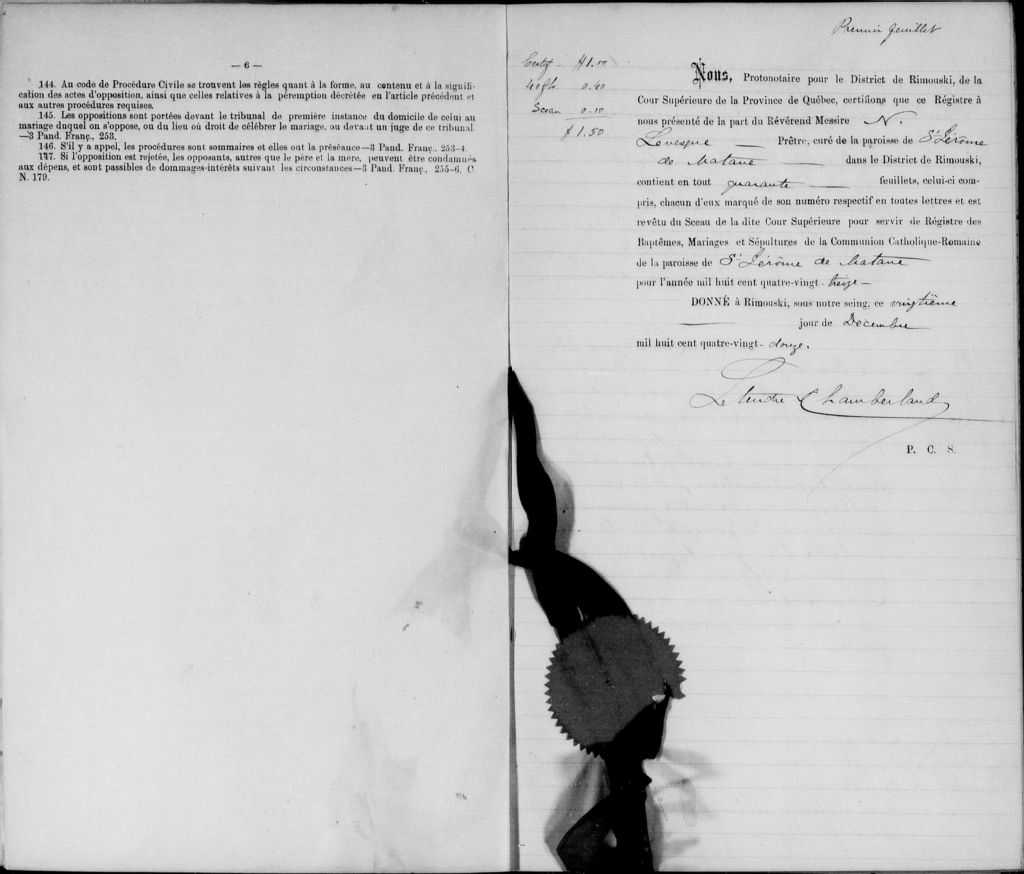 — 6 —
144. Au code de Procédure Civile se trouvent les règles quant à la forme, au contenu et à la signifi-
cation des actes d'opposition, ainsi que celles relatives à la péremption décrétée en l'article précédent et
aux autres procédures requises.
145. Les oppositions sont portées devant le tribunal de première instance du domicile de celui au
mariage duquel on s'oppose, ou du lieu où droit de célébrer le mariage, ou devant un juge de ce tribunal
—3 Pand. Franç., 253.
146. S'il y a appel, les procédures sont sommaires et elles ont la préséance—3 Pand. Franç., 253-4.
147. Si l'opposition est rejetée, les opposants, autres que le père et la mère, peuvent être condamnés
aux dépens, et sont passibles de dommages-intérêts suivant les circonstances—3 Pand. Franç., 255-6. C
N. 179.
Premier feuillet
Certif. $1.00
40 fls 0.40
Sceau 0.10
$1.50
Nous, Protonotaire pour le District de Rimouski, de la
Cour Supérieure de la Province de Québec, certifions que ce Régistre à
nous présenté de la part du Révérend Messire N.
Levesque — Prêtre, curé de la paroisse de St Jérôme
de Matane — dans le District de Rimouski,
contient en tout quarante — feuillets, celui-ci com-
pris, chacun d'eux marqué de son numéro respectif en toutes lettres et est
revêtu du Sceau de la dite Cour Supérieure pour servir de Régistre des
Baptêmes, Mariages et Sépultures de la Communion Catholique-Romaine
de la paroisse de St Jérôme de Matane
pour l'année mil huit cent quatre-vingt-treize—
DONNÉ à Rimouski, sous notre seing, ce vingtième
— jour de Décembre
mil huit cent quatre-vingt-douze.
Letendre & Chamberland
P. C. S.